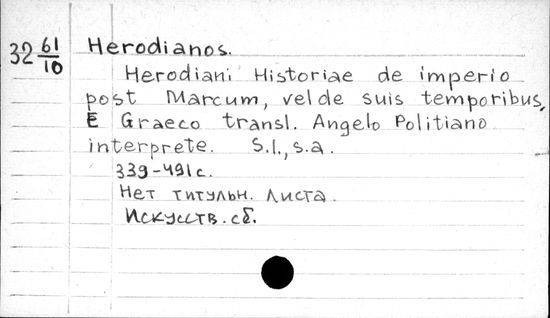 32 61/10 Herodianos.
Herodiani Historiae de imperio
post Marcum, vel de suis temporibus,
E Graeco transl. Angelo Politiano
interprete. S.l., s.a.
339-491 с.
Нет титульн. листа.
Искусств. сб.